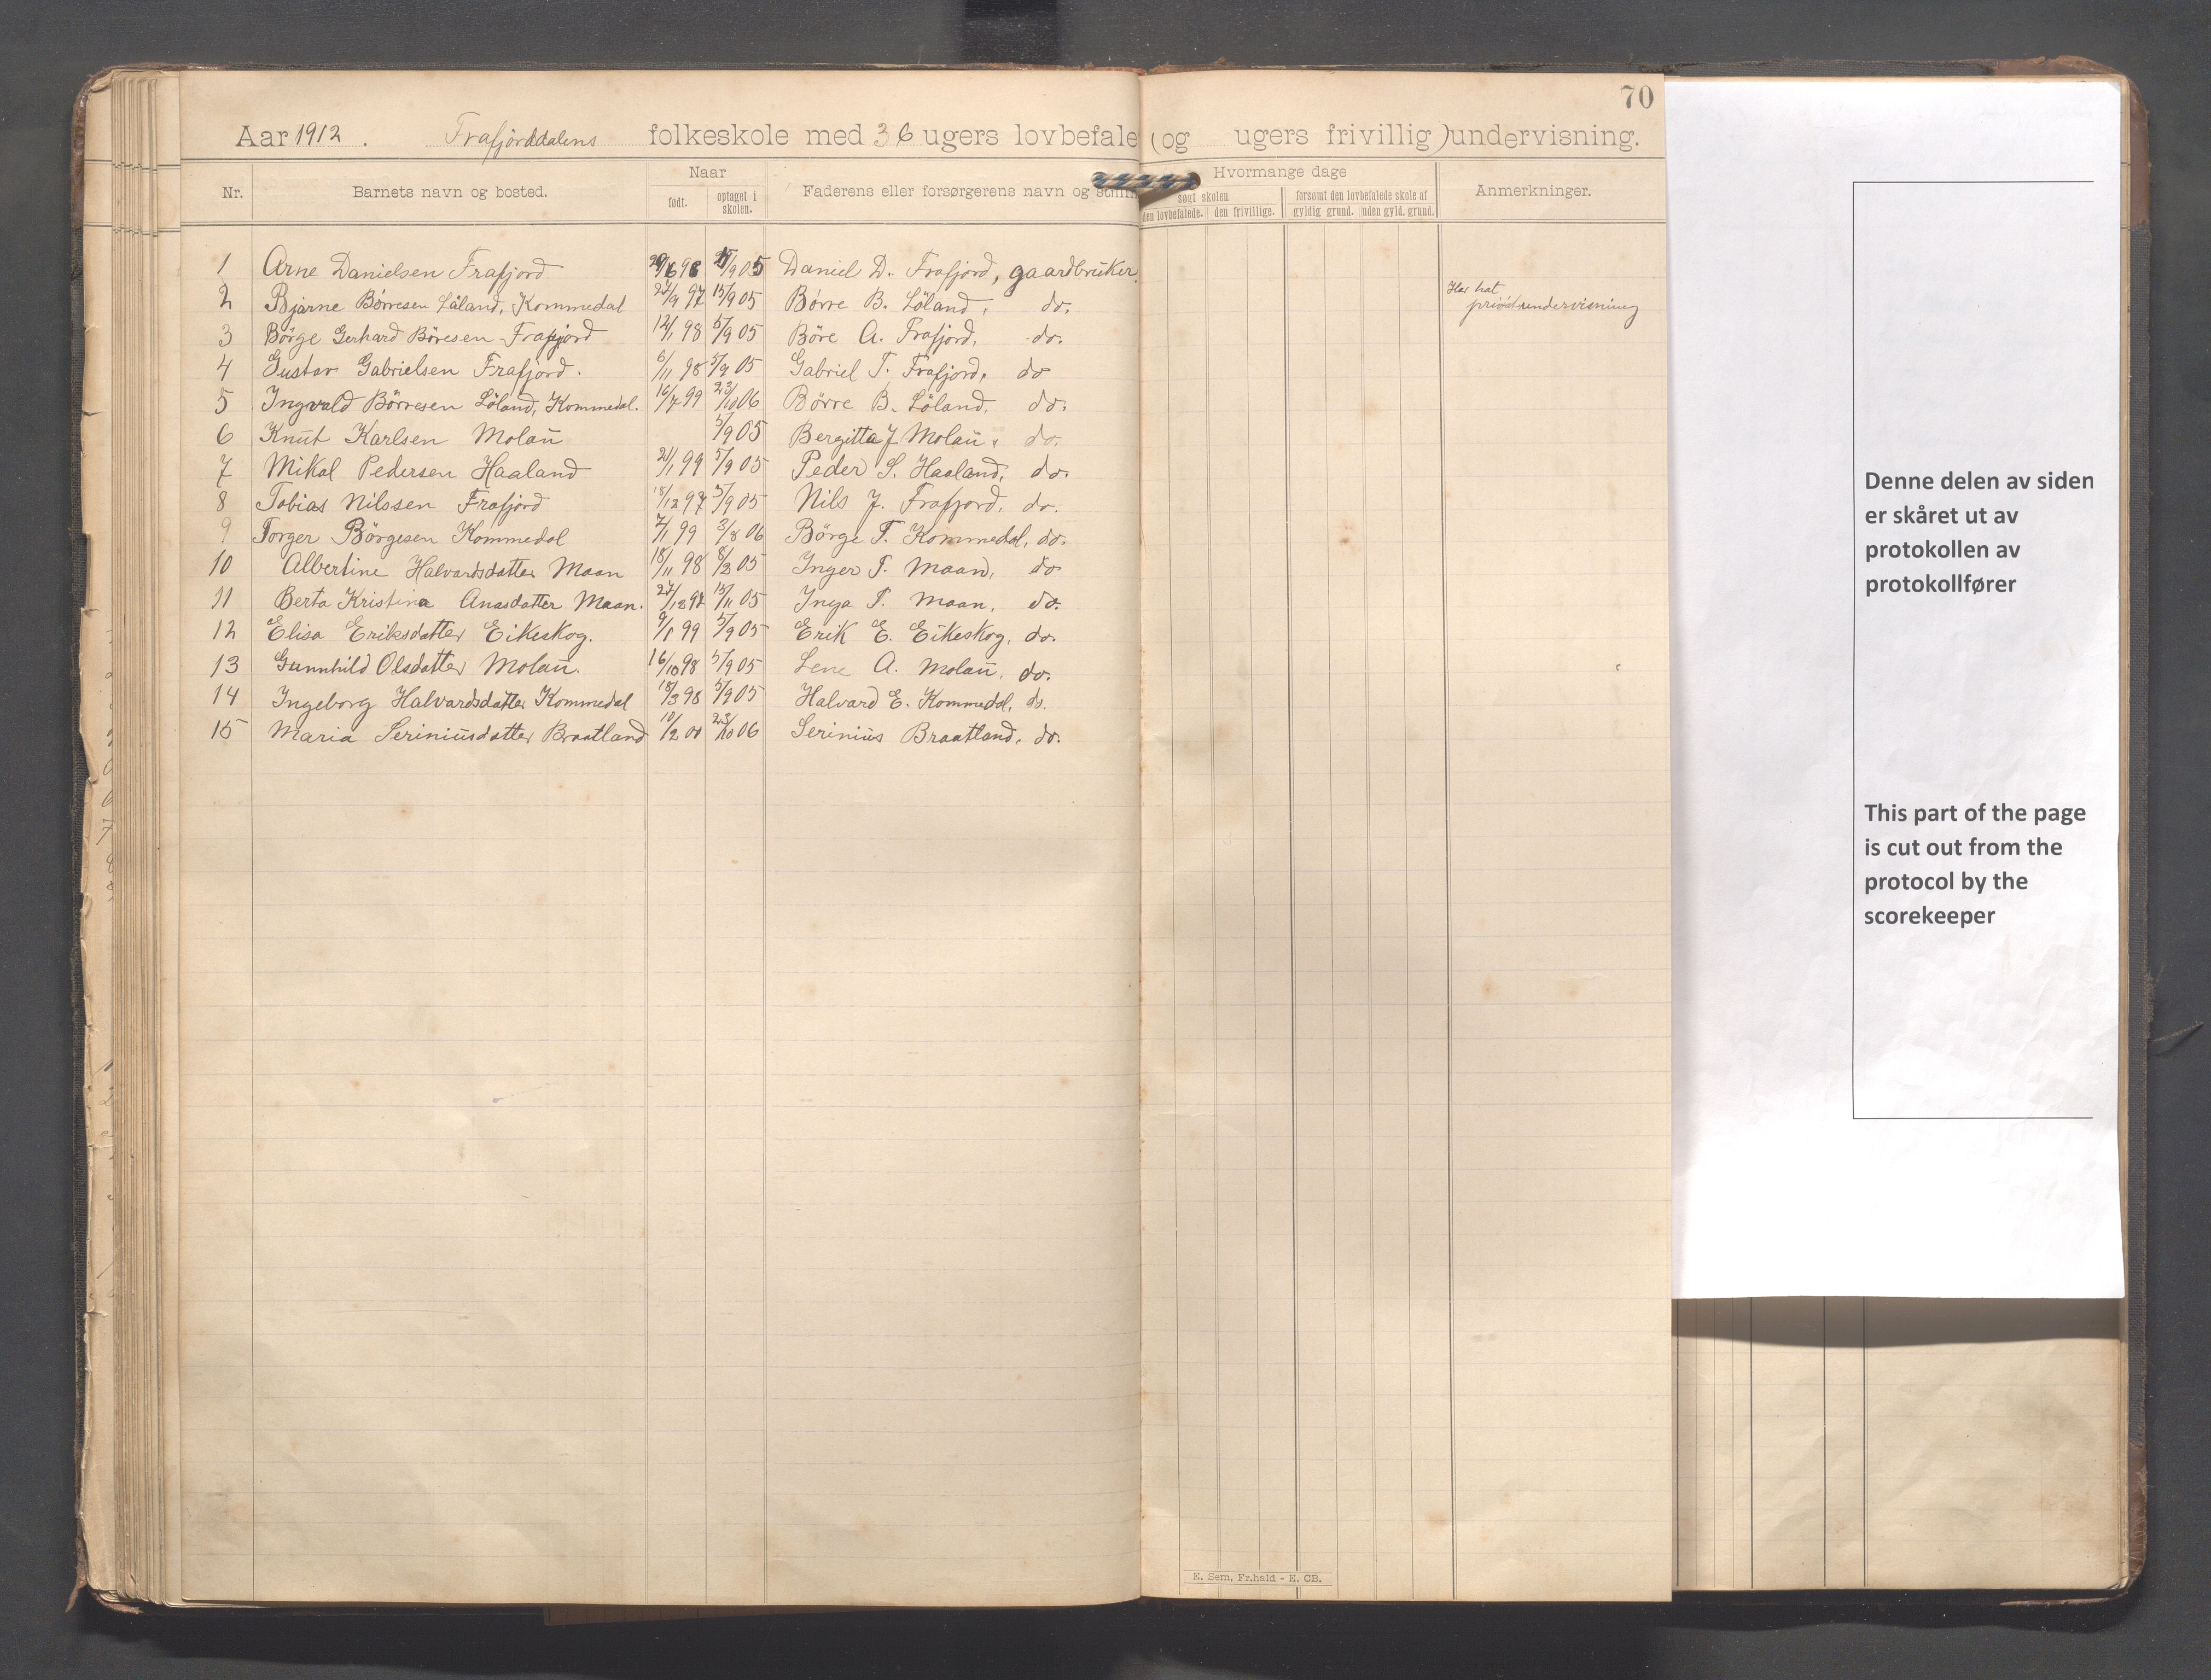 70
Aar 1912. Frafjorddalens folkeskole med 36 ugers lovbefale (og ugers frivillig) undervisning.
Nr. Barnets navn og bosted. Naar født. optaget i skolen. Faderens eller forsørgerens navn og stillin Hvormange dage søgt skolen den lovbefalede. den frivillige. forsømt den lovbefalede skole af gyldig grund. uden gyld. grund. Anmerkninger.
1 Arne Danielsen Frafjord 5/9 05 Daniel D. Frafjord, gaardbruker.
2 Bjarne Börresen Löland, Kommedal 27/9 97 15/9 05 Börre B. Löland, do. Har hat privatundervisning
3 Börge Gerhard Böresen Frafjord 12/1 98 5/9 05 Böre A. Frafjord, do.
4 Gustav Gabrielsen Frafjord. 6/11 98 5/9 05 Gabriel T. Frafjord, do
5 Ingvald Börresen Löland, Kommedal. 16/7 99 23/10 06 Börre B. Löland, do.
6 Knut Karlsen Molaü 5/9 05 Bergitta J Molaü, do.
7 Mikal Pedersen Haaland 21/1 99 5/9 05 Peder S. Haaland, do.
8 Tobias Nilssen Frafjord 18/12 97 5/9 05 Nils J. Frafjord, do.
9 Torger Börgesen Kommedal 7/1 99 3/8 06 Börge T. Kommedal, do.
10 Albertine Halvardsdatter Maan 18/11 98 8/3 05 Inger T. Maan, do
11 Berta Kristina Anasdatter Maan. 27/12 97 15/11 05 Inga T. Maan, do.
12 Elisa Eriksdatter Eikeskog. 9/1 99 5/9 05 Erik E. Eikeskog, do.
13 Gunnhild Olsdatter Molaü. 16/10 98 5/9 05 Lene A. Molaü, do.
14 Ingeborg Halvardsdatter Kommedal 18/3 98 5/9 05 Halvard E. Kommedal, do.
15 Maria Seriniüsdatter Braatland 10/2 00 23/10 06 Seriniüs Braatland, do.
E. Sem, Fr.hald - E. CB.
Denne delen av siden
er skåret ut av
protokollen av
protokollfører
This part of the page
is cut out from the
protocol by the
scorekeeper